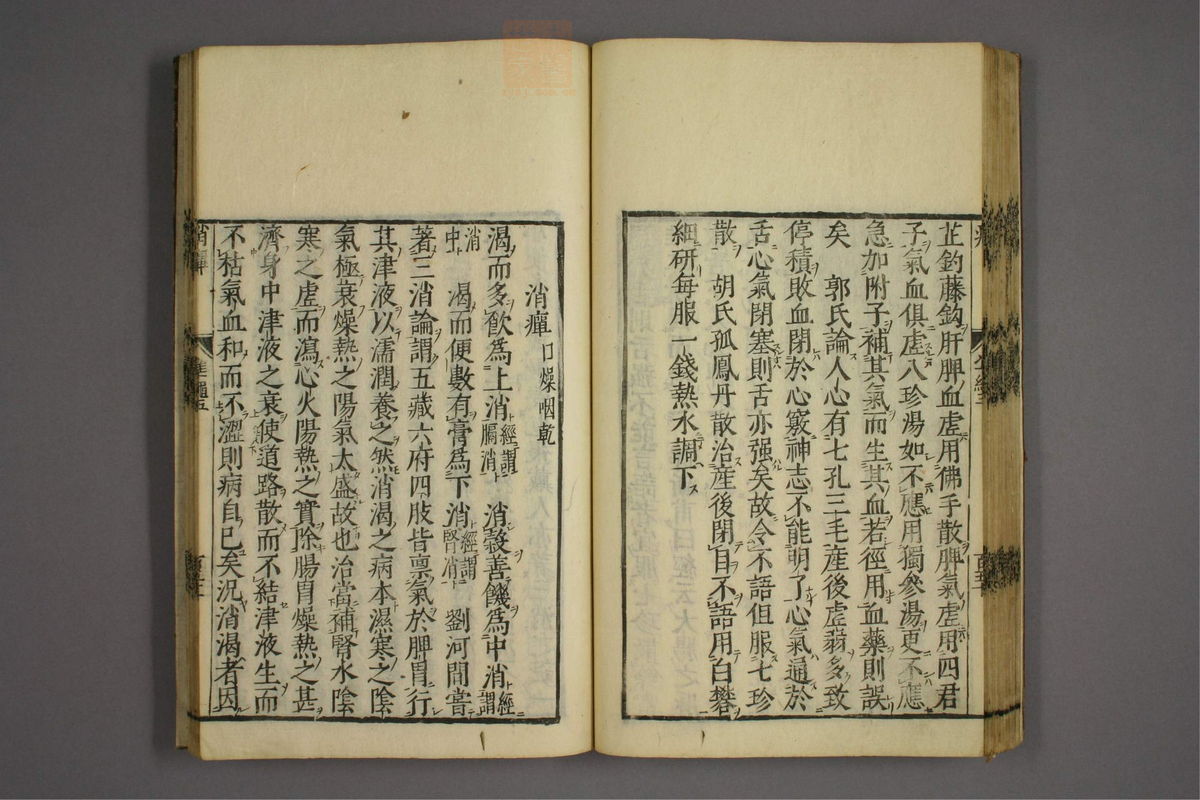 芷鈎藤鈎肝脾血虚用佛手散脾氣虚用四君
子氣血俱虚八珍湯如不應用獨參湯更不應
急加附子補其氣而生其血若徑用血藥則誤
矣　郭氏論人心有七孔三毛産後虚弱多致
停積敗血閉於心竅神志不能明了心氣通於
舌心氣閉塞則舌亦强矣故令不語但服七珍
散　胡氏孤鳳丹散治産後閉目不語用白礬
細研每服一錢熱水調下
消癉口燥咽乾
渴而多飲為上消經謂膈消　消穀善饑為中消經謂
消中　渴而便數有膏為下消經謂腎消　劉河間嘗
著三消論謂五藏六府四肢皆禀氣於脾胃行
其津液以濡潤養之然消渴之病本濕寒之陰
氣極衰燥熱之陽氣太盛故也治當補腎水陰
寒之虚而瀉心火陽熱之實除腸胃燥熱之甚
濟身中津液之衰使道路散而不結津液生而
不枯氣血和而不澀則病自已矣況消渴者因
消癉
準繩五